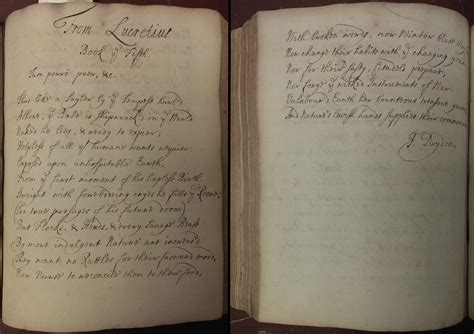 From Lucretius
Book ye Fifth.
Tum porrò puer, &c.
Thus like a Saylor by ye Tempest hurl'd
Ashore, ye Babe is Shipwrack'd on ye World:
Naked he lies, & ready to expire;
Helpless of all yt humane wants require:
Expos'd upon unhospitable Earth,
From ye first moment of his hapless Birth.
Straight with foreboding cryes he fills ye Room;
Too true presages of his future doom.
But Flocks, & Herds, & every Savage Beast
By more indulgent Nature are increas'd
They want no Rattles for their froward mood,
Nor Nurse to reconcile them to their food,
With broken words; nor Winter blasts
Nor change their habits with ye changing year.
Nor for their safety, Citadels prepare;
Nor forge ye wicked Instruments of War:
Unlabour'd Earth her bounteous treasure
And Nature's lavish hands supplies their common
J. Dryden.